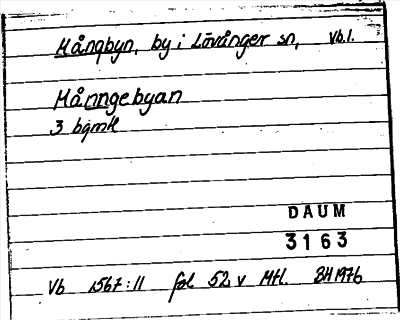 Mångbyn, by i Lövånger sn, Vb.l.
Månngebyan
3 bgmtl
DAUM
3163
Vb 1567:11 fol 52 v Mtl. BH 1976